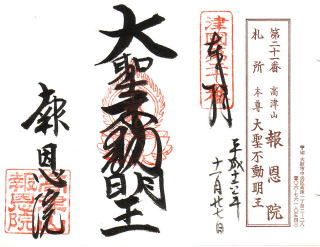 第二十一番 高津山 報恩院
札所 本尊 大聖不動明王
奉拝
平成十六年
十一月廿七日
大聖不動明王
報恩院
報恩院